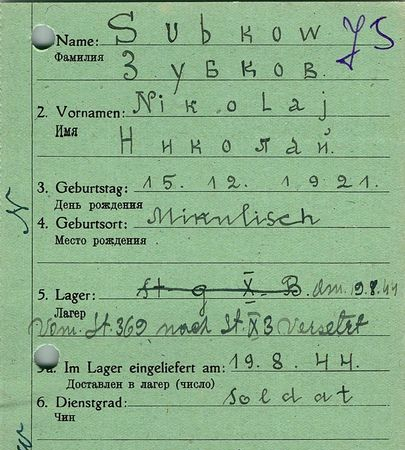 Name: Subkow
Фамилия Зубков.
2. Vornamen: Nikolaj
Имя Николай.
3. Geburtstag: 15. 12. 1921.
День рождения
4. Geburtsort: Mikulisch
Место рождения.
5. Lager: St g X. B. Am 19.8.44
Лагер
Vom. St. 369 nach St X B Versetzt
5a. Im Lager eingeliefert am: 19.8.44.
Доставлен в лагер (число)
6. Dienstgrad: Soldat
Чин